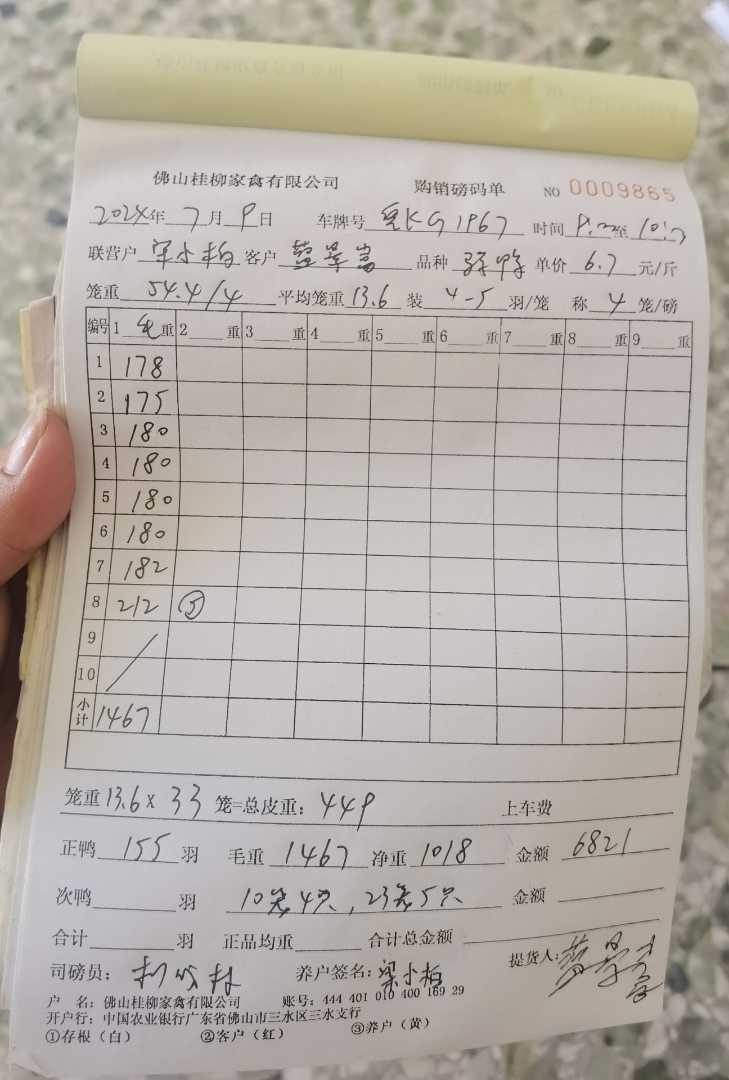 佛山桂柳家禽有限公司 购销磅码单 NO 0009865
2024年 7月 9日 车牌号 KG1967 时间 至
联营户 梁小柏 客户 品种 单价 6.7 元/斤
笼重 54.4/4 平均笼重 13.6 装 4-5 羽/笼 称 4 笼/磅
编号 1 毛重 2 重 3 重 4 重 5 重 6 重 7 重 8 重 9 重
1 178
2 175
3 180
4 180
5 180
6 180
7 182
8 212 ⑤
9
10
小计 1467
笼重 13.6 x 33 笼=总皮重: 449 上车费
正鸭 155 羽 毛重 1467 净重 1018 金额 6821
次鸭 羽 10笼4只,23笼5只 金额
合计 羽 正品均重 合计总金额
司磅员: 养户签名: 梁小柏 提货人:
户 名: 佛山桂柳家禽有限公司 账号: 444 401 010 400 169 29
开户行: 中国农业银行广东省佛山市三水区三水支行
①存根(白) ②客户(红) ③养户(黄)